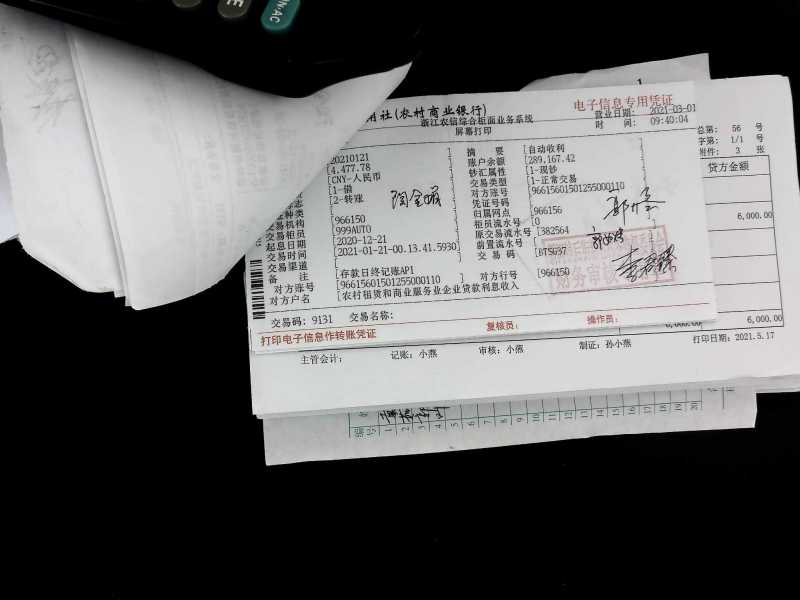 N·AC
E
用社(农村商业银行)
电子信息专用凭证
浙江农信综合柜面业务系统
屏幕打印
营业日期: 2021-03-01
时 间: 09:40:04
[20210121
[4,477.78
[CNY-人民币
[1-借
[2-转账
摘 要 [自动收利
账户余额 [289,167.42
钞汇属性 [1-现钞
交易类型 [1-正常交易
对方账号 [96615601501255000110
凭证号码 [0
归属网点 [966156
柜员流水号 [
原交易流水号 [382564
前置流水号 [
交易码 [BTSG37
对方行号 [966150
交易机构 [966150
交易柜员 [999AUTO
起息日期 [2020-12-21
交易时间 [2021-01-21-00.13.41.5930]
交易渠道 [
备 注 [存款日终记账API
对方账号 [96615601501255000110
对方户名 [农村租赁和商业服务业企业贷款利息收入
财务审核
交易码: 9131 交易名称:
打印电子信息作转账凭证
复核员:
操作员:
总第: 56 号
字第: 1/1 号
附件: 3 张
贷方金额
6,000.00
6,000.00
6,000.00
主管会计: 记账: 小燕 审核: 小燕 制证: 孙小燕 打印日期: 2021.5.17
编号 1 2 3 4 5 6 7 8 9 10 11 12 13 14 15 16 17 18 19 20